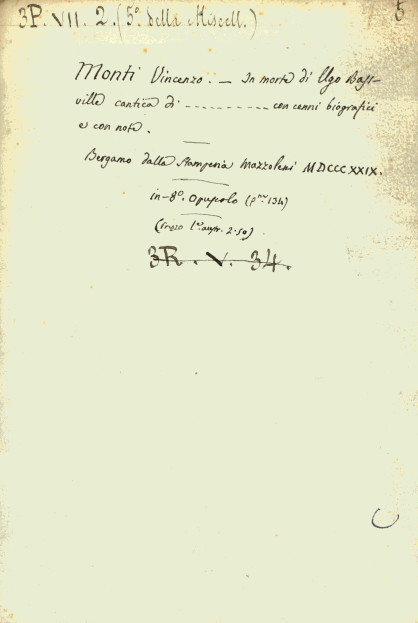 3P. VII. 2. (5º. della Miscell.) 5
Monti Vincenzo. — In morte di Ugo Bass-
ville cantica di ----------- con cenni biografici
e con note.
Bergamo dalla Stamperia Mazzoleni MDCCCXXIX.
in-8º. Opuscolo (pne 134)
(Prezzo lre austr. 2.50)
3R. V. 34.